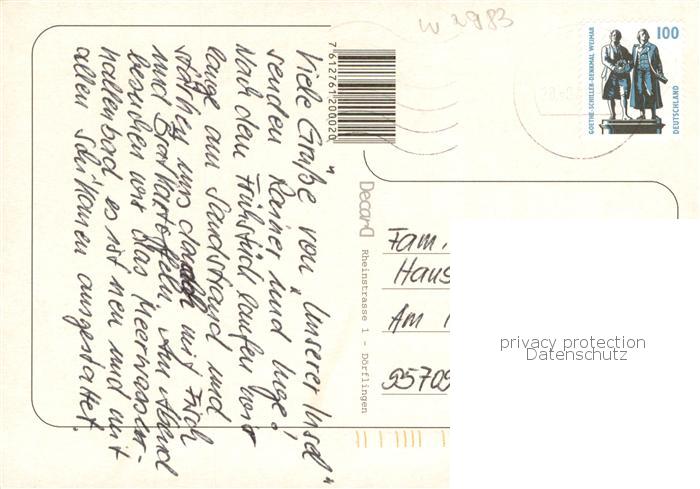 w 2983
100
GOETHE-SCHILLER-DENKMAL WEIMAR
DEUTSCHLAND
7612761200020
Viele Grüße von "Unserer Insel"
senden Rainer und Inge!
Nach dem Frühstück laufen wir
lange am Sandstrand und
stärken uns danach mit Fisch
und Bratkartoffeln. Am Abend
besuchen wir das Meerwasser-
hallenbad es ist neu und mit
allen Schikanen ausgestattet.
Decard
Rheinstrasse 1 - Dörflingen
Fam.
Haus
Am
95709
privacy protection
Datenschutz